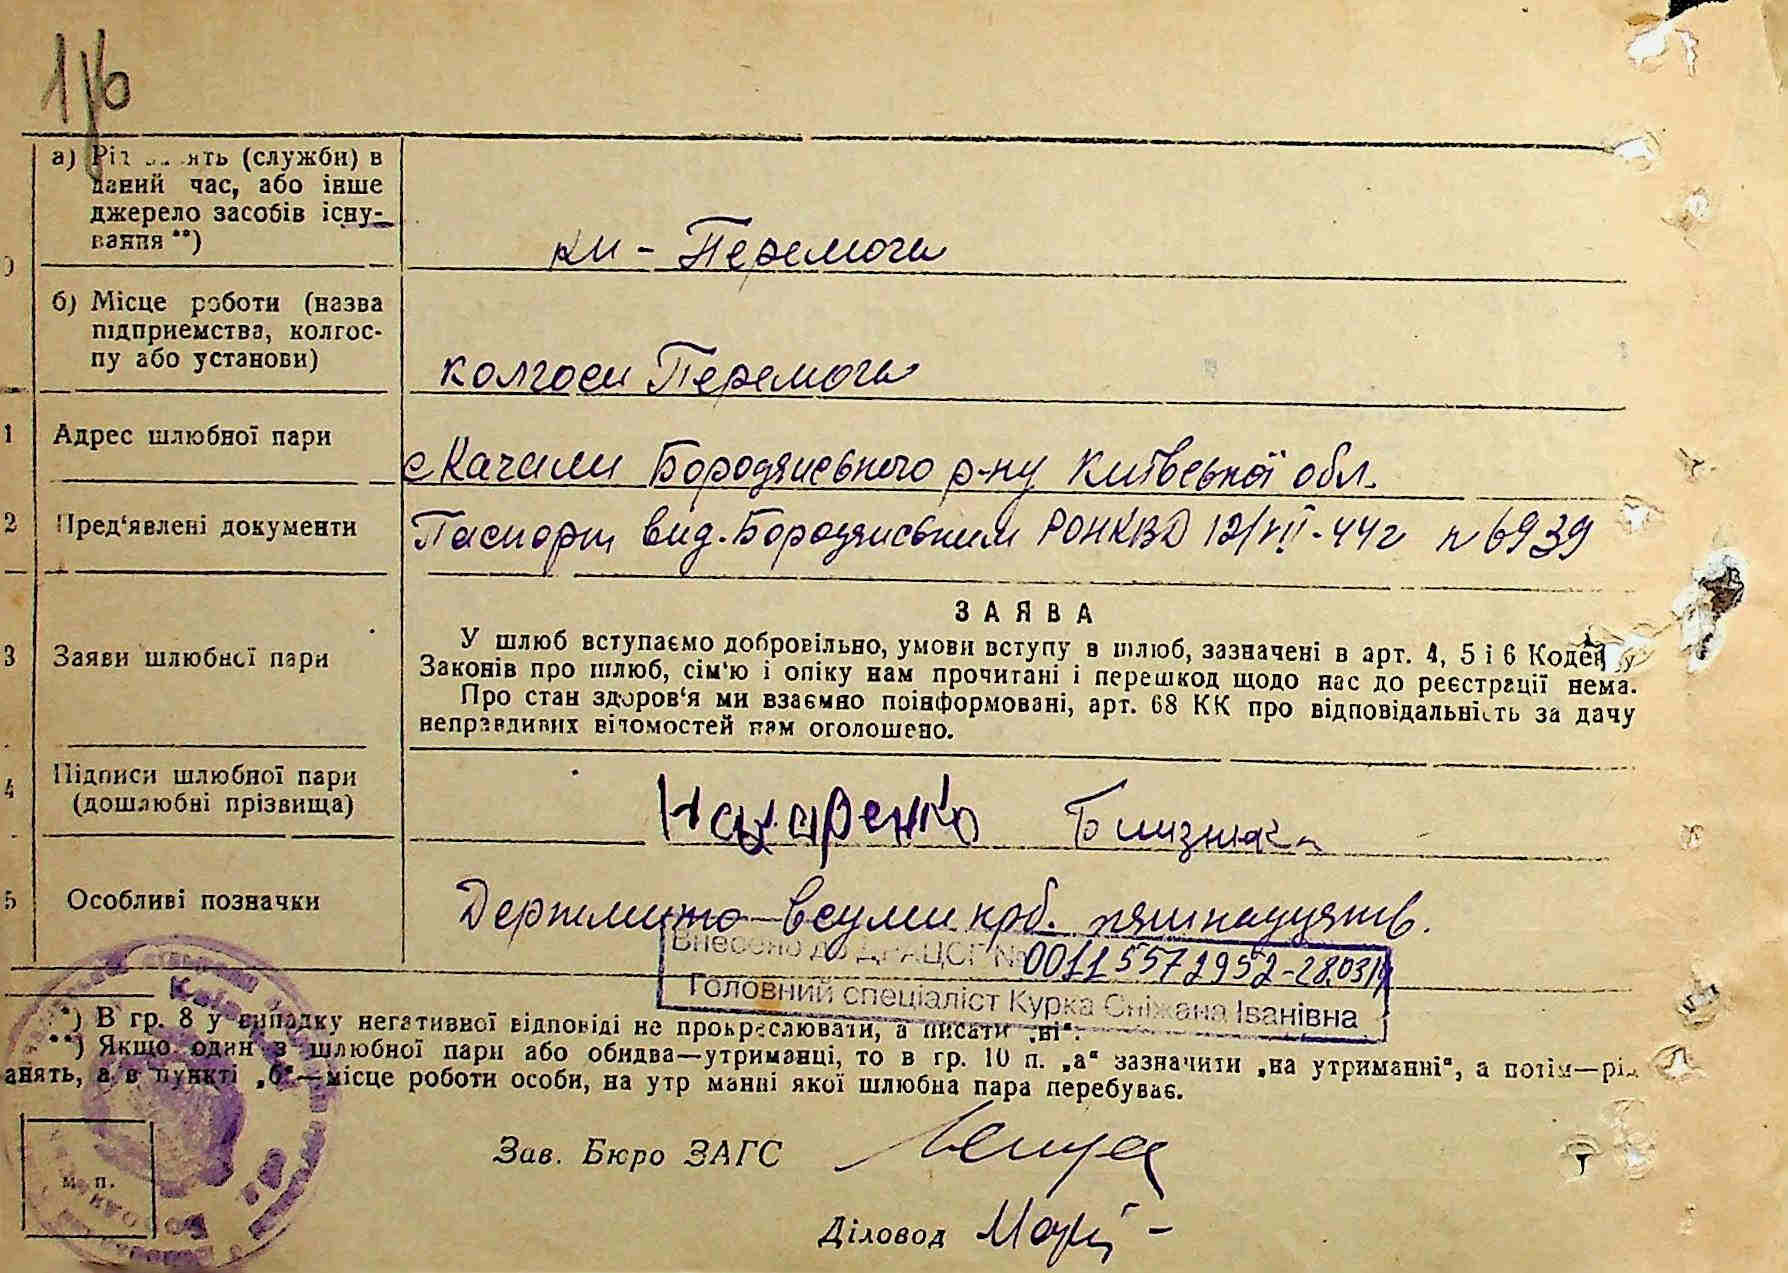 а) Рід занять (служби) в
даний час, або інше
джерело засобів існу-
вання **)
кол - Перемога
б) Місце роботи (назва
підприємства, колгос-
пу або установи)
колгосп Перемога
1 Адрес шлюбної пари
с Качали Бородянського р-ну Київської обл.
2 Пред‘явлені документи
Паспорт вид. Бородянським РОНКВД 12/VII-44г № 6939
ЗАЯВА
3 Заяви шлюбної пари
У шлюб вступаємо добровільно, умови вступу в шлюб, зазначені в арт. 4, 5 і 6 Кодексу
Законів про шлюб, сім‘ю і опіку нам прочитані і перешкод щодо нас до реєстрації нема.
Про стан здоров‘я ми взаємно поінформовані, арт. 68 КК про відповідальність за дачу
неправдивих відомостей нам оголошено.
4 Підписи шлюбної пари
(дошлюбні прізвища)
Назаренко Близнюк
5 Особливі позначки
Держмито в сумі крб. п'ятнадцять.
Внесено до ДРАЦСГ № 00115571952-28.03
Головний спеціаліст Курка Сніжана Іванівна
*) В гр. 8 у випадку негативної відповіді не прокреслювати, а писати „ні“.
**) Якщо один з шлюбної пари або обидва—утриманці, то в гр. 10 п. „а“ зазначити „на утриманні“, а потім—рід
анять, а в пункті „б“—місце роботи особи, на утр манні якої шлюбна пара перебуває.
Зав. Бюро ЗАГС
м. п.
Діловод